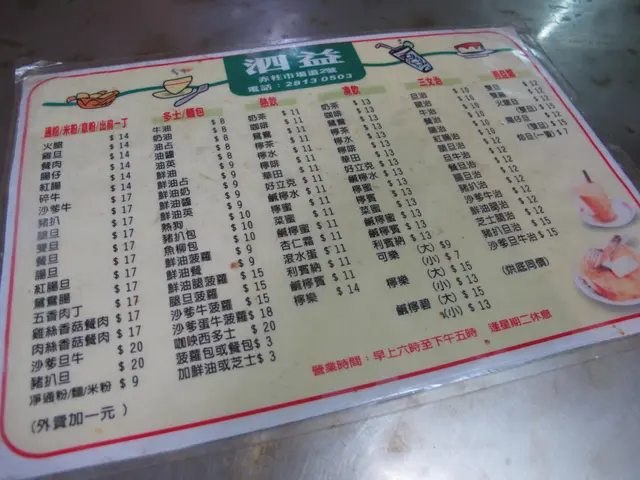 泗益
赤柱市場道2號
電話：2813 0503
通粉/米粉/意粉/出前一丁
火腿 $14
雞旦 $14
餐肉 $14
腸仔 $14
紅腸 $14
碎牛 $17
沙爹牛 $17
豬扒 $17
腿旦 $17
雙旦 $17
餐旦 $17
腸旦 $17
紅腸旦 $17
鴛鴦腸 $17
五香肉丁 $17
雞絲香菇餐肉 $17
肉絲香菇餐肉 $17
沙爹旦牛 $20
豬扒旦 $20
凈通粉/麵/米粉 $9
(外賣加一元)
多士/麵包
牛油 $8
奶油 $8
油占 $8
油醬 $8
油英 $9
鮮油 $9
鮮油占 $9
鮮油奶 $9
鮮油醬 $9
鮮油英 $9
熱狗 $10
豬扒包 $10
魚柳包 $10
鮮油菠蘿 $9
鮮油餐
鮮油腿菠蘿 $15
腿旦菠蘿 $15
沙爹牛菠蘿 $15
沙爹蛋牛菠蘿 $18
咖央西多士 $20
菠蘿包或餐包 $3
加鮮油或芝士 $3
熱飲
奶茶 $11
咖啡 $11
鴛鴦 $11
檸茶 $11
檸水 $11
檸啡 $11
華田 $11
好立克 $11
鹹檸水 $11
檸蜜 $11
檸賓 $11
菜蜜 $11
鹹檸蜜 $11
杏仁霜 $11
滾水蛋 $11
利賓納 $11
鹹檸賓 $11
檸樂 $14
凍飲
奶茶 $13
咖啡 $13
鴛鴦 $13
檸茶 $13
檸水 $13
檸啡 $13
華田 $13
好立克 $13
鹹檸水 $13
檸蜜 $13
檸賓 $13
菜蜜 $13
鹹檸蜜 $13
利賓納 $13
可樂 (大) $9
(小) $7
檸樂 (大) $15
(小) $13
鹹檸碧 (大) $15
(小) $13
三文治
旦治 $10
腿治 $10
沙爹牛治 $12
鮮油腿治 $12
芝士腿治 $12
豬扒旦治 $15
沙爹旦牛治 $15
(烘底同價)
雙旦 $12
營業時間：早上六時至下午五時 逢星期二休息